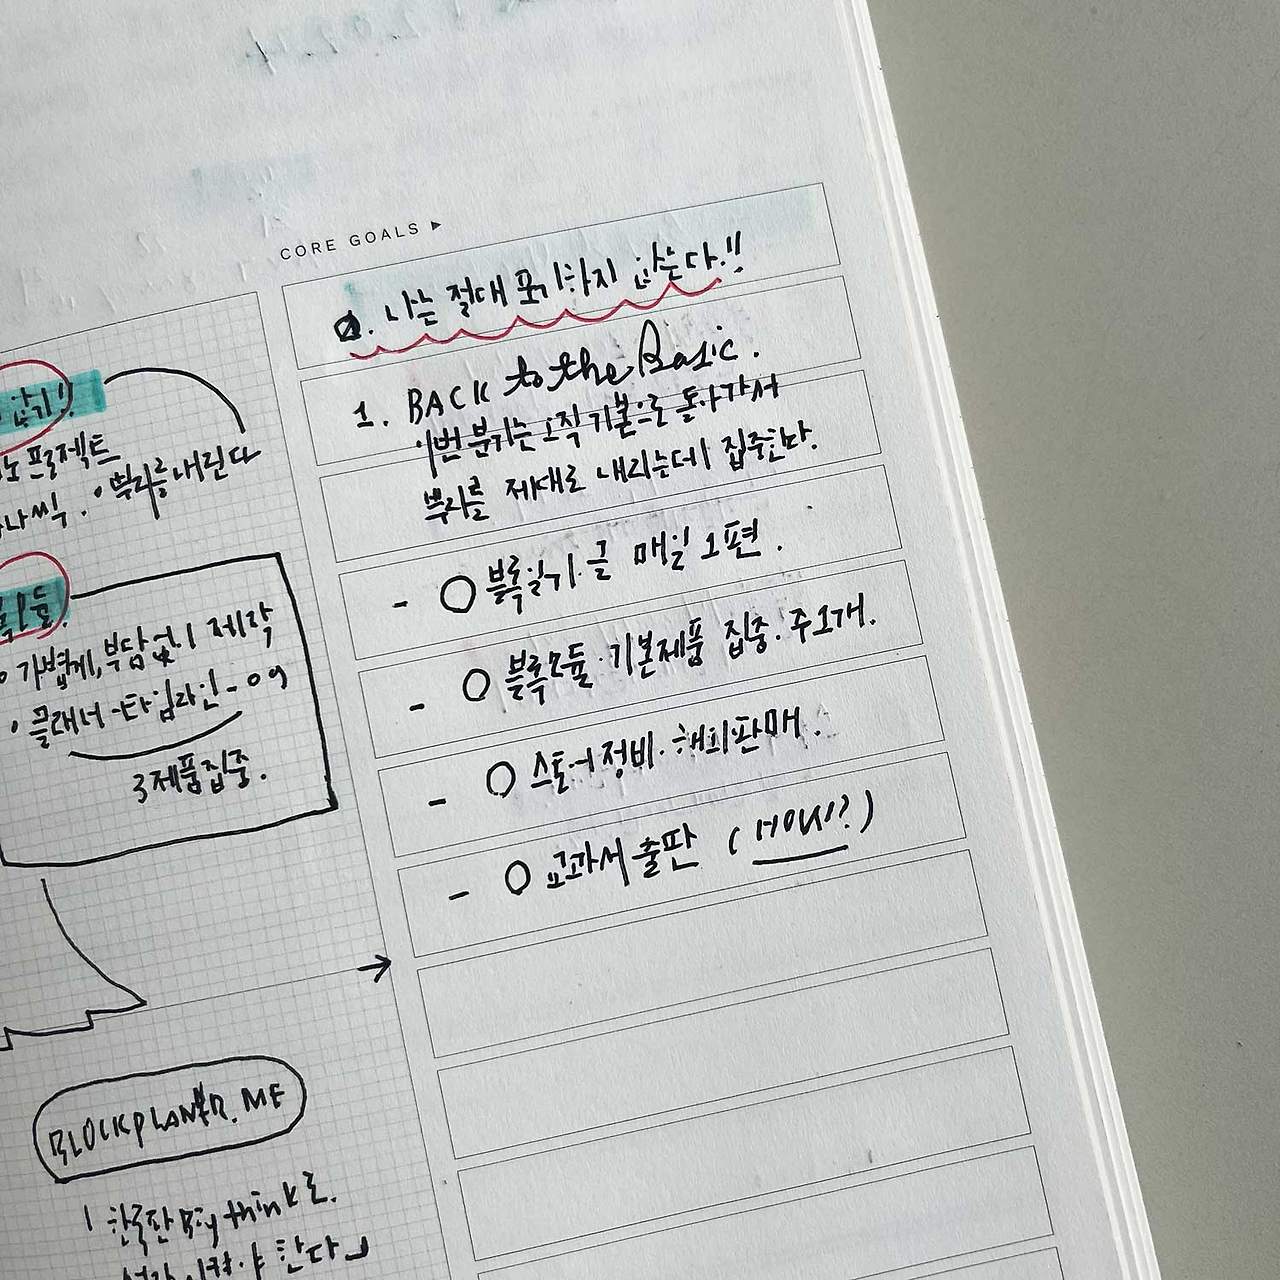 CORE GOALS ▶
0. 나는 절대 포기하지 않는다!!
1. BACK to the Basic.
이번 분기는 오직 기본으로 돌아가서
뿌리를 제대로 내리는데 집중한다.
- ○ 블록일기 글 매일 1편.
- ○ 블록모듈·기본제품 집중·주1개.
- ○ 스토어정비·해외판매.
- ○ 교과서 출판 (HOW!?)
프로젝트
· 뿌리를 내린다
○ 가볍게, 부담없이 제작
· 플래너-타임라인-09
3제품집중.
→
BLOCKPLANNER.ME
한국판 Big think로.
한다